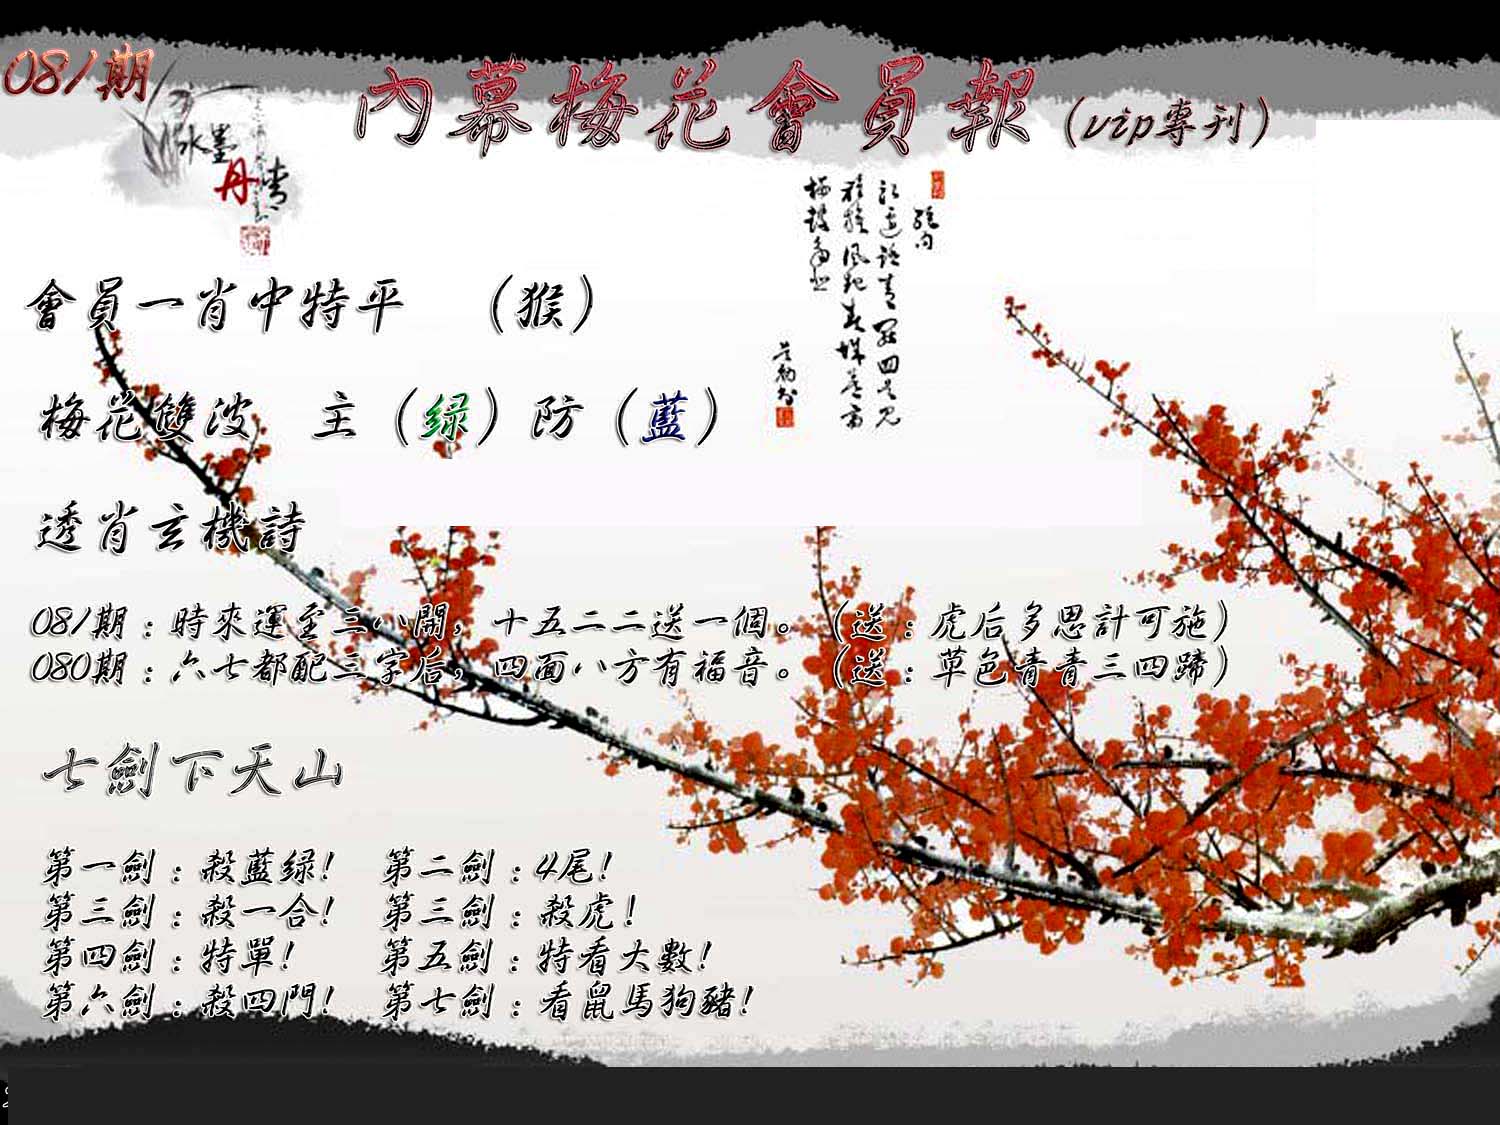 081期
內幕梅花會員報(vip專刊)
水墨
丹青
會員一肖中特平 (猴)
梅花雙波 主(绿)防(藍)
透肖玄機詩
081期:時來運至三八開,十五二二送一個。(送:虎后多思計可施)
080期:六七都配三字后,四面八方有福音。(送:草色青青三四蹄)
七劍下天山
第一劍:殺藍绿! 第二劍:4尾!
第三劍:殺一合! 第三劍:殺虎!
第四劍:特單! 第五劍:特看大數!
第六劍:殺四門! 第七劍:看鼠馬狗豬!